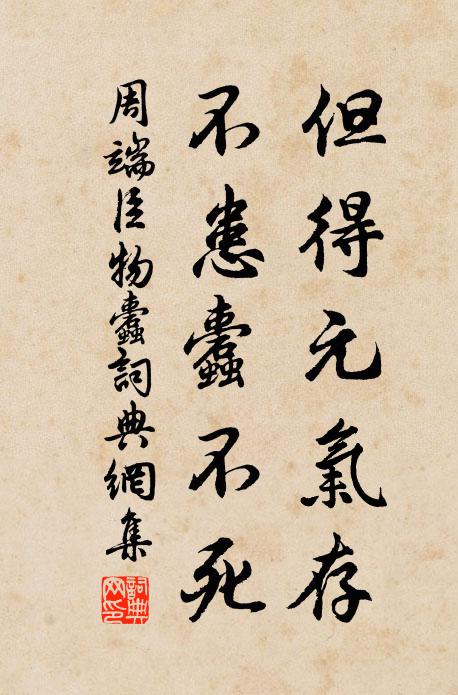 但得元氣存
不患蠹不死
周端臣物蠹詞典網集
詞典網印